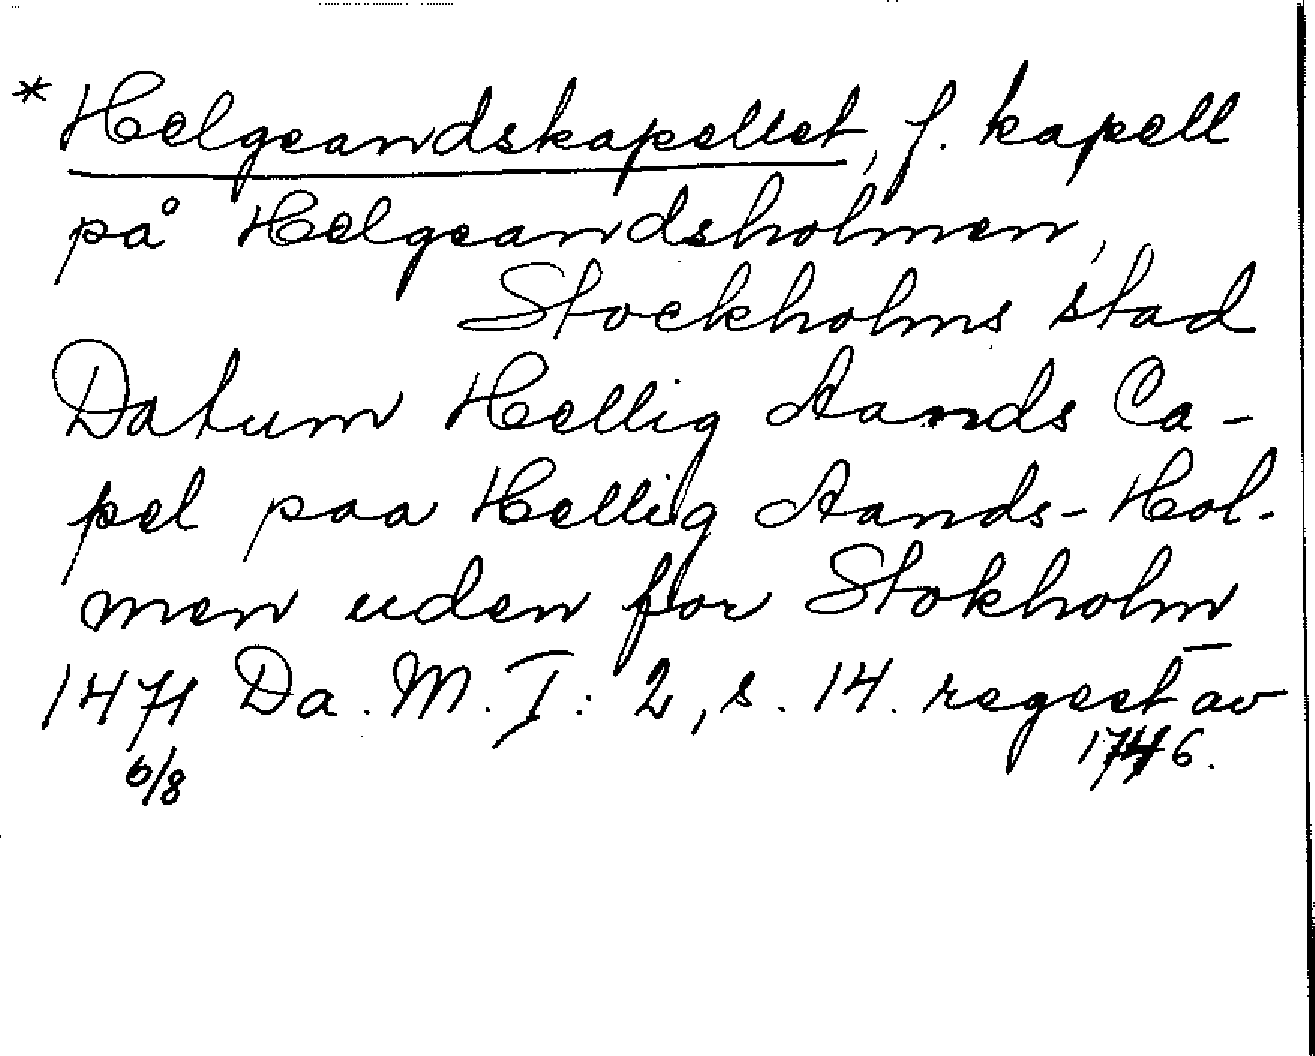 * Helgeandskapellet, f. kapell
på Helgeandsholmen,
Stockholms stad
Datum Hellig Aands Ca-
pel paa Hellig Aands-Hol-
men uden for Stokholm
1471 Da. M. I: 2, s. 14. regest av
6/8 1746.